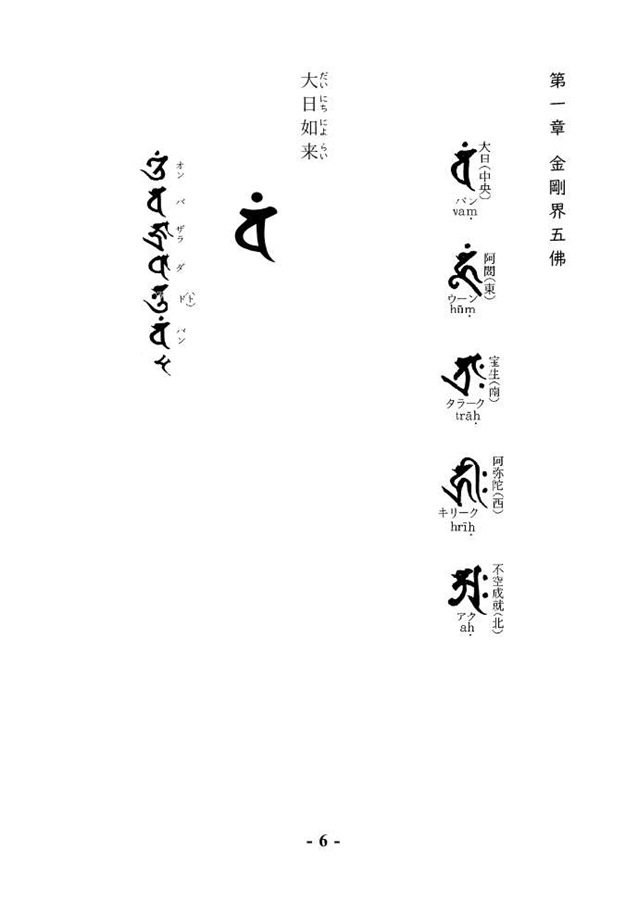 第一章 金剛界五佛
大日（中央）
バン
vaṃ
阿閦（東）
ウーン
hūṃ
宝生（南）
タラーク
trāḥ
阿弥陀（西）
キリーク
hrīḥ
不空成就（北）
アク
aḥ
大日如来
だいにちにょらい
オン バ ザラ ダ ド（ト） バン
- 6 -